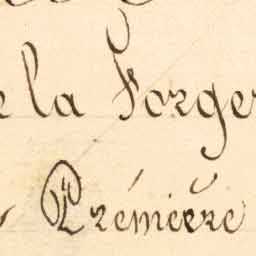 la Forger
Prémière